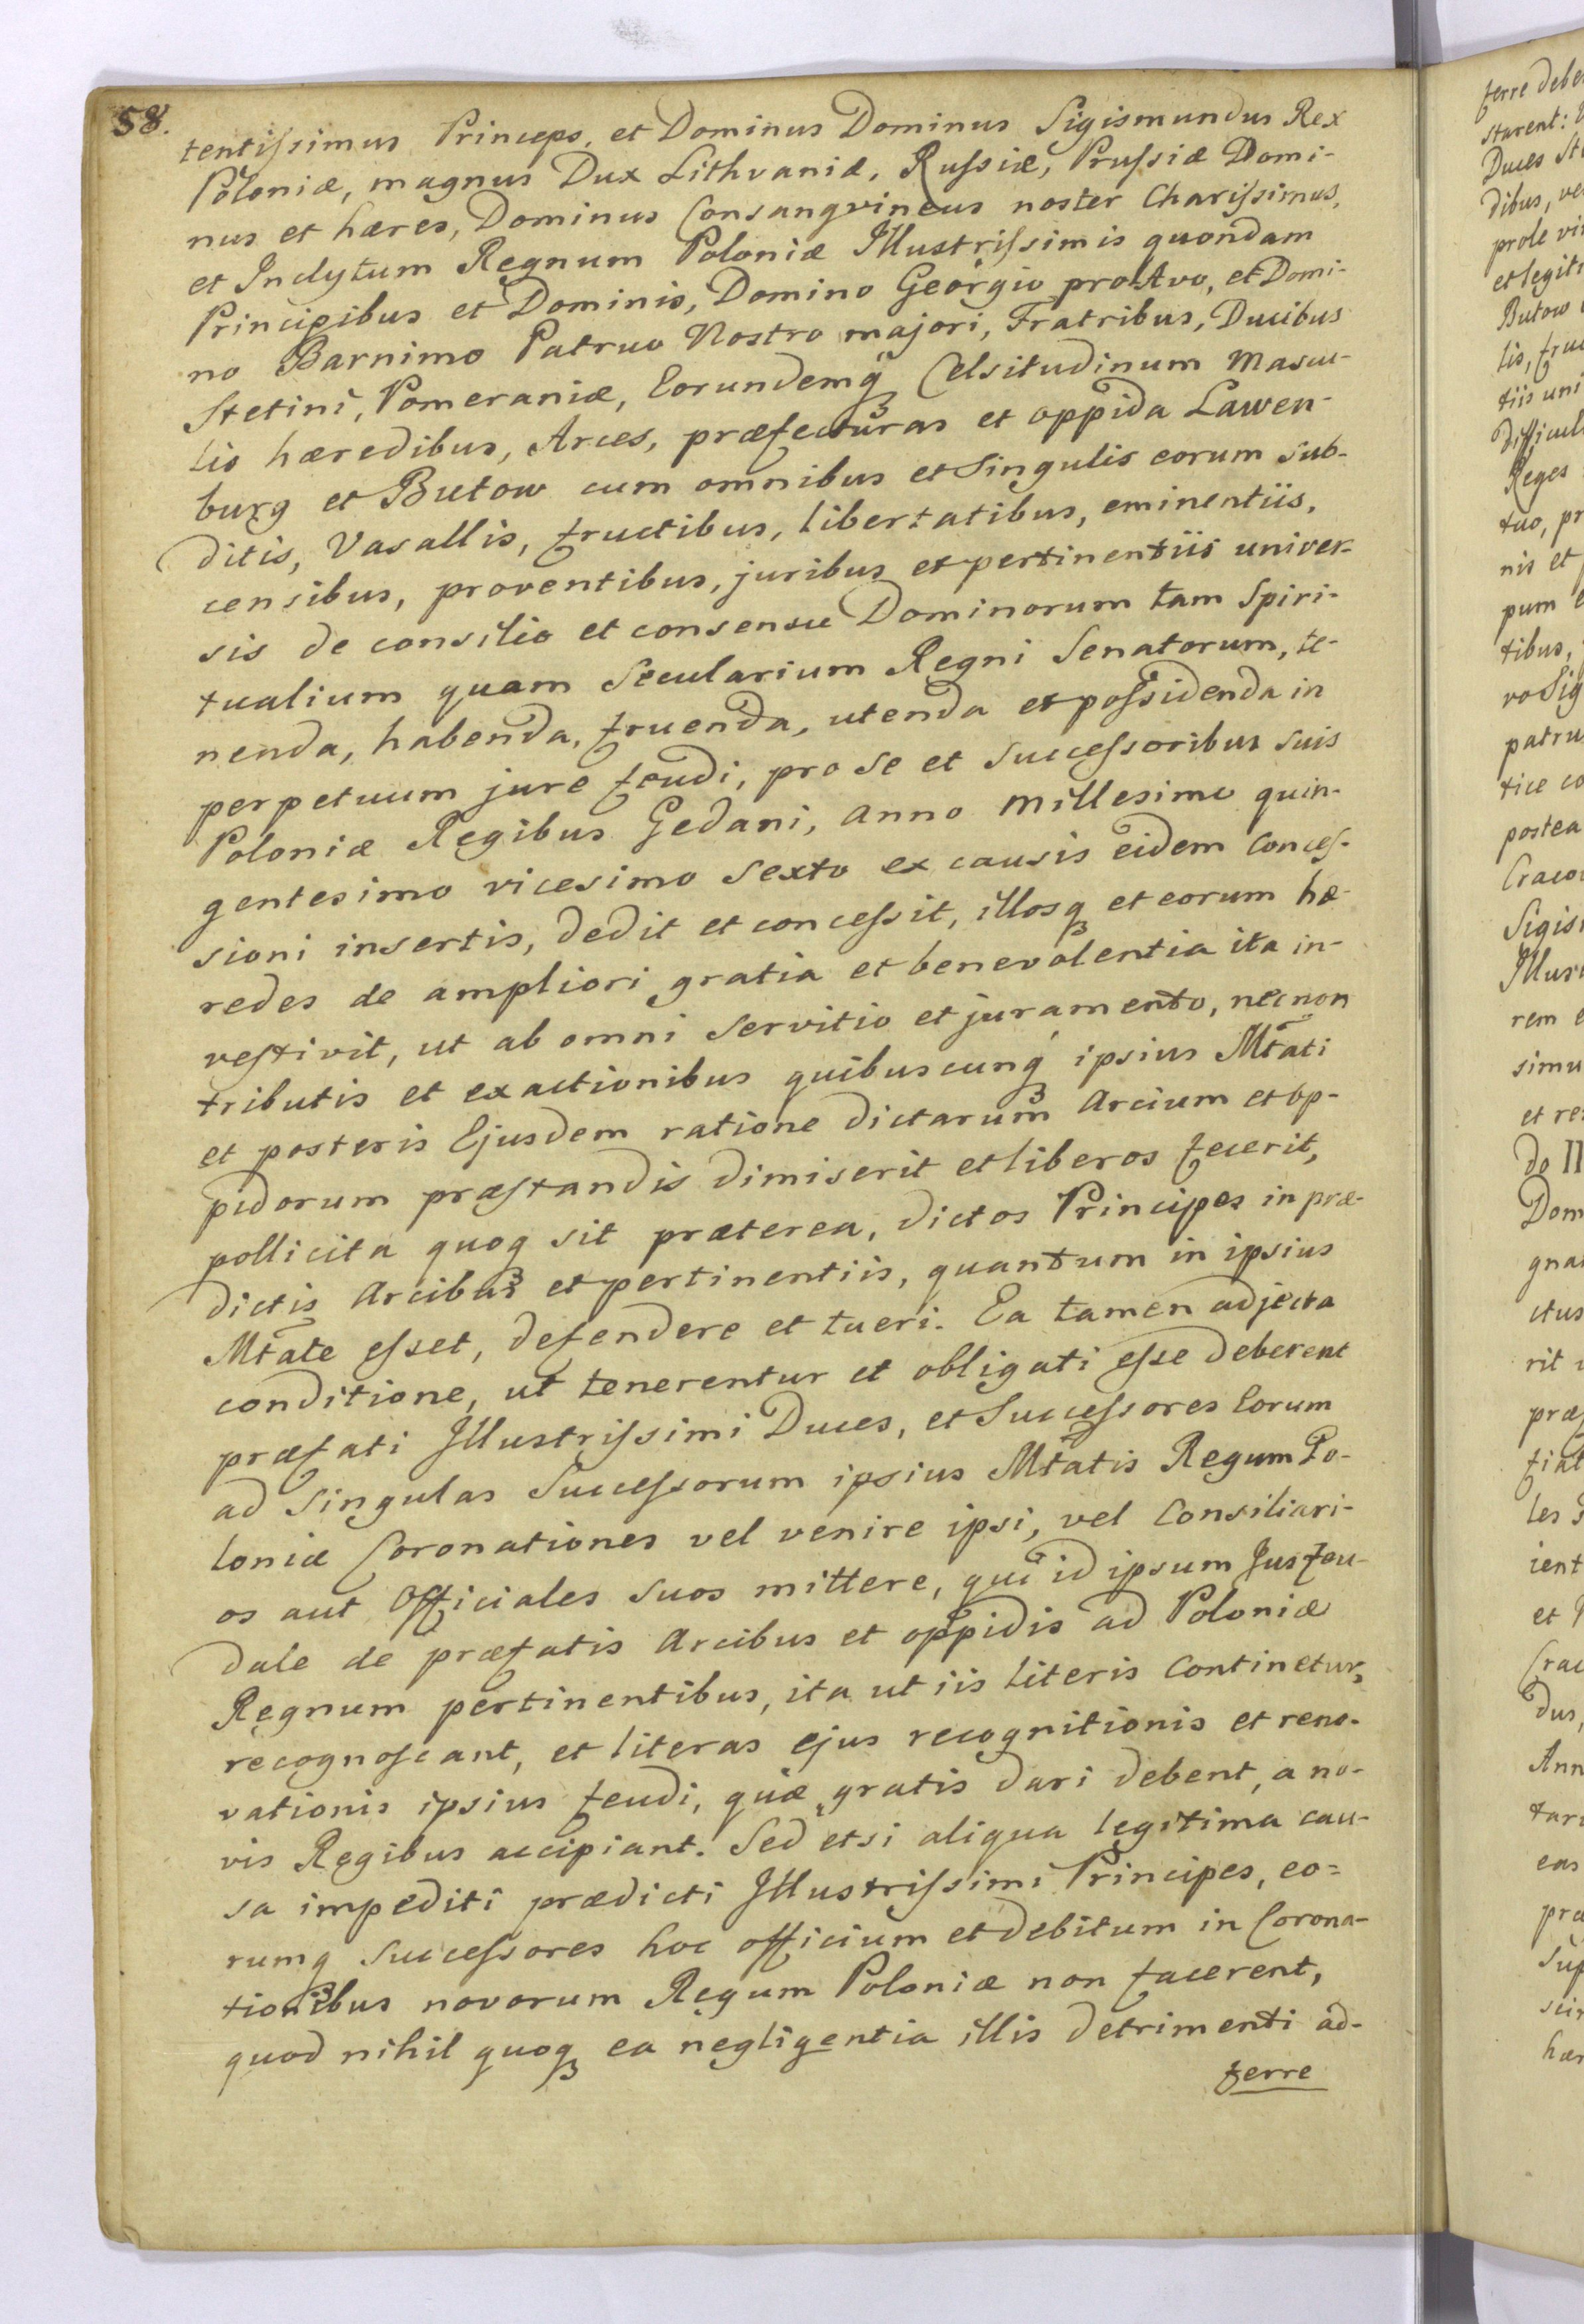 58.
tentiſsimus Princeps, et Dominus Dominus Sigismundus Rex
Poloniæ, magnus Dux Lithvaniæ, Ruſsiæ, Pruſsiæ Domi-
nus et hæres, Dominus Consangvineus noster Chariſsimus,
et Inclytum Regnum Poloniæ Illustriſsimis quondam
Principibus et Dominis, Domino Georgio proAvo, et Domi-
no Barnimo Patruo Nostro majori, Fratribus, Ducibus
Stetini, Pomeraniæ, Eorundemq́ꝫ Celsitudinum Mascu-
lis hæredibus, Arces, præfecturas et oppida Lawen-
burg et Butow cum omnibus et Singulis eorum sub-
ditis, Vasallis, fructibus, libertatibus, eminentiis,
censibus, proventibus, juribus et pertinentiis univer-
sis de consilio et consensu Dominorum tam Spiri-
tualium quam Secularium Regni Senatorum, te-
nenda, habenda, fruenda, utenda et poſsidenda in
perpetuum jure feudi, pro Se et Succeſsoribus suis
Poloniæ Regibus Gedani, Anno Millesimo quin-
gentesimo vicesimo Sexto ex causis eidem Conceſ-
sioni insertis, dedit et conceſsit, illosqꝫ et eorum hæ-
redes de ampliori gratia et benevolentia ita in-
veſtivit, ut ab omni Servitio et juramento, nec non
tributis et exactionibus quibuscunq́ꝫ ipsius Mtati
et posteris Ejusdem ratione dictarum Arcium et op-
pidorum præſtandis dimiserit et liberos fecerit,
pollicita quoqꝫ sit præterea, dictos Principes in præ-
dictis Arcibus et pertinentiis, quantum in ipsius
Mtate eſset, defendere et tueri. Ea tamen adjecta
conditione, ut tenerentur et obligati eſse deberent
præfati Illustriſsimi Duces, et Succeſsores Eorum
ad Singulas Succeſsorum ipsius Mtatis Regum Po-
loniæ Coronationes vel venire ipsi, vel Consiliari-
os aut Officiales suos mittere, qui id ipsum Jus feu-
dale de præfatis Arcibus et oppidis ad Poloniæ
Regnum pertinentibus, ita ut iis literis Continetur,
recognoſcant, et literas ejus recognitionis et reno-
vationis ipsius feudi, quæ gratis dari debent, a no-
vis Regibus accipiant. Sed etsi aliqua legitima cau-
sa impediti prædicti Illustriſsimi Principes, eo=
rumqꝫ Succeſsores hoc officium et debitum in Corona-
tionibus novorum Regum Poloniæ non facerent,
quod nihil quoqꝫ ea negligentia illis detrimenti ad-
ferre